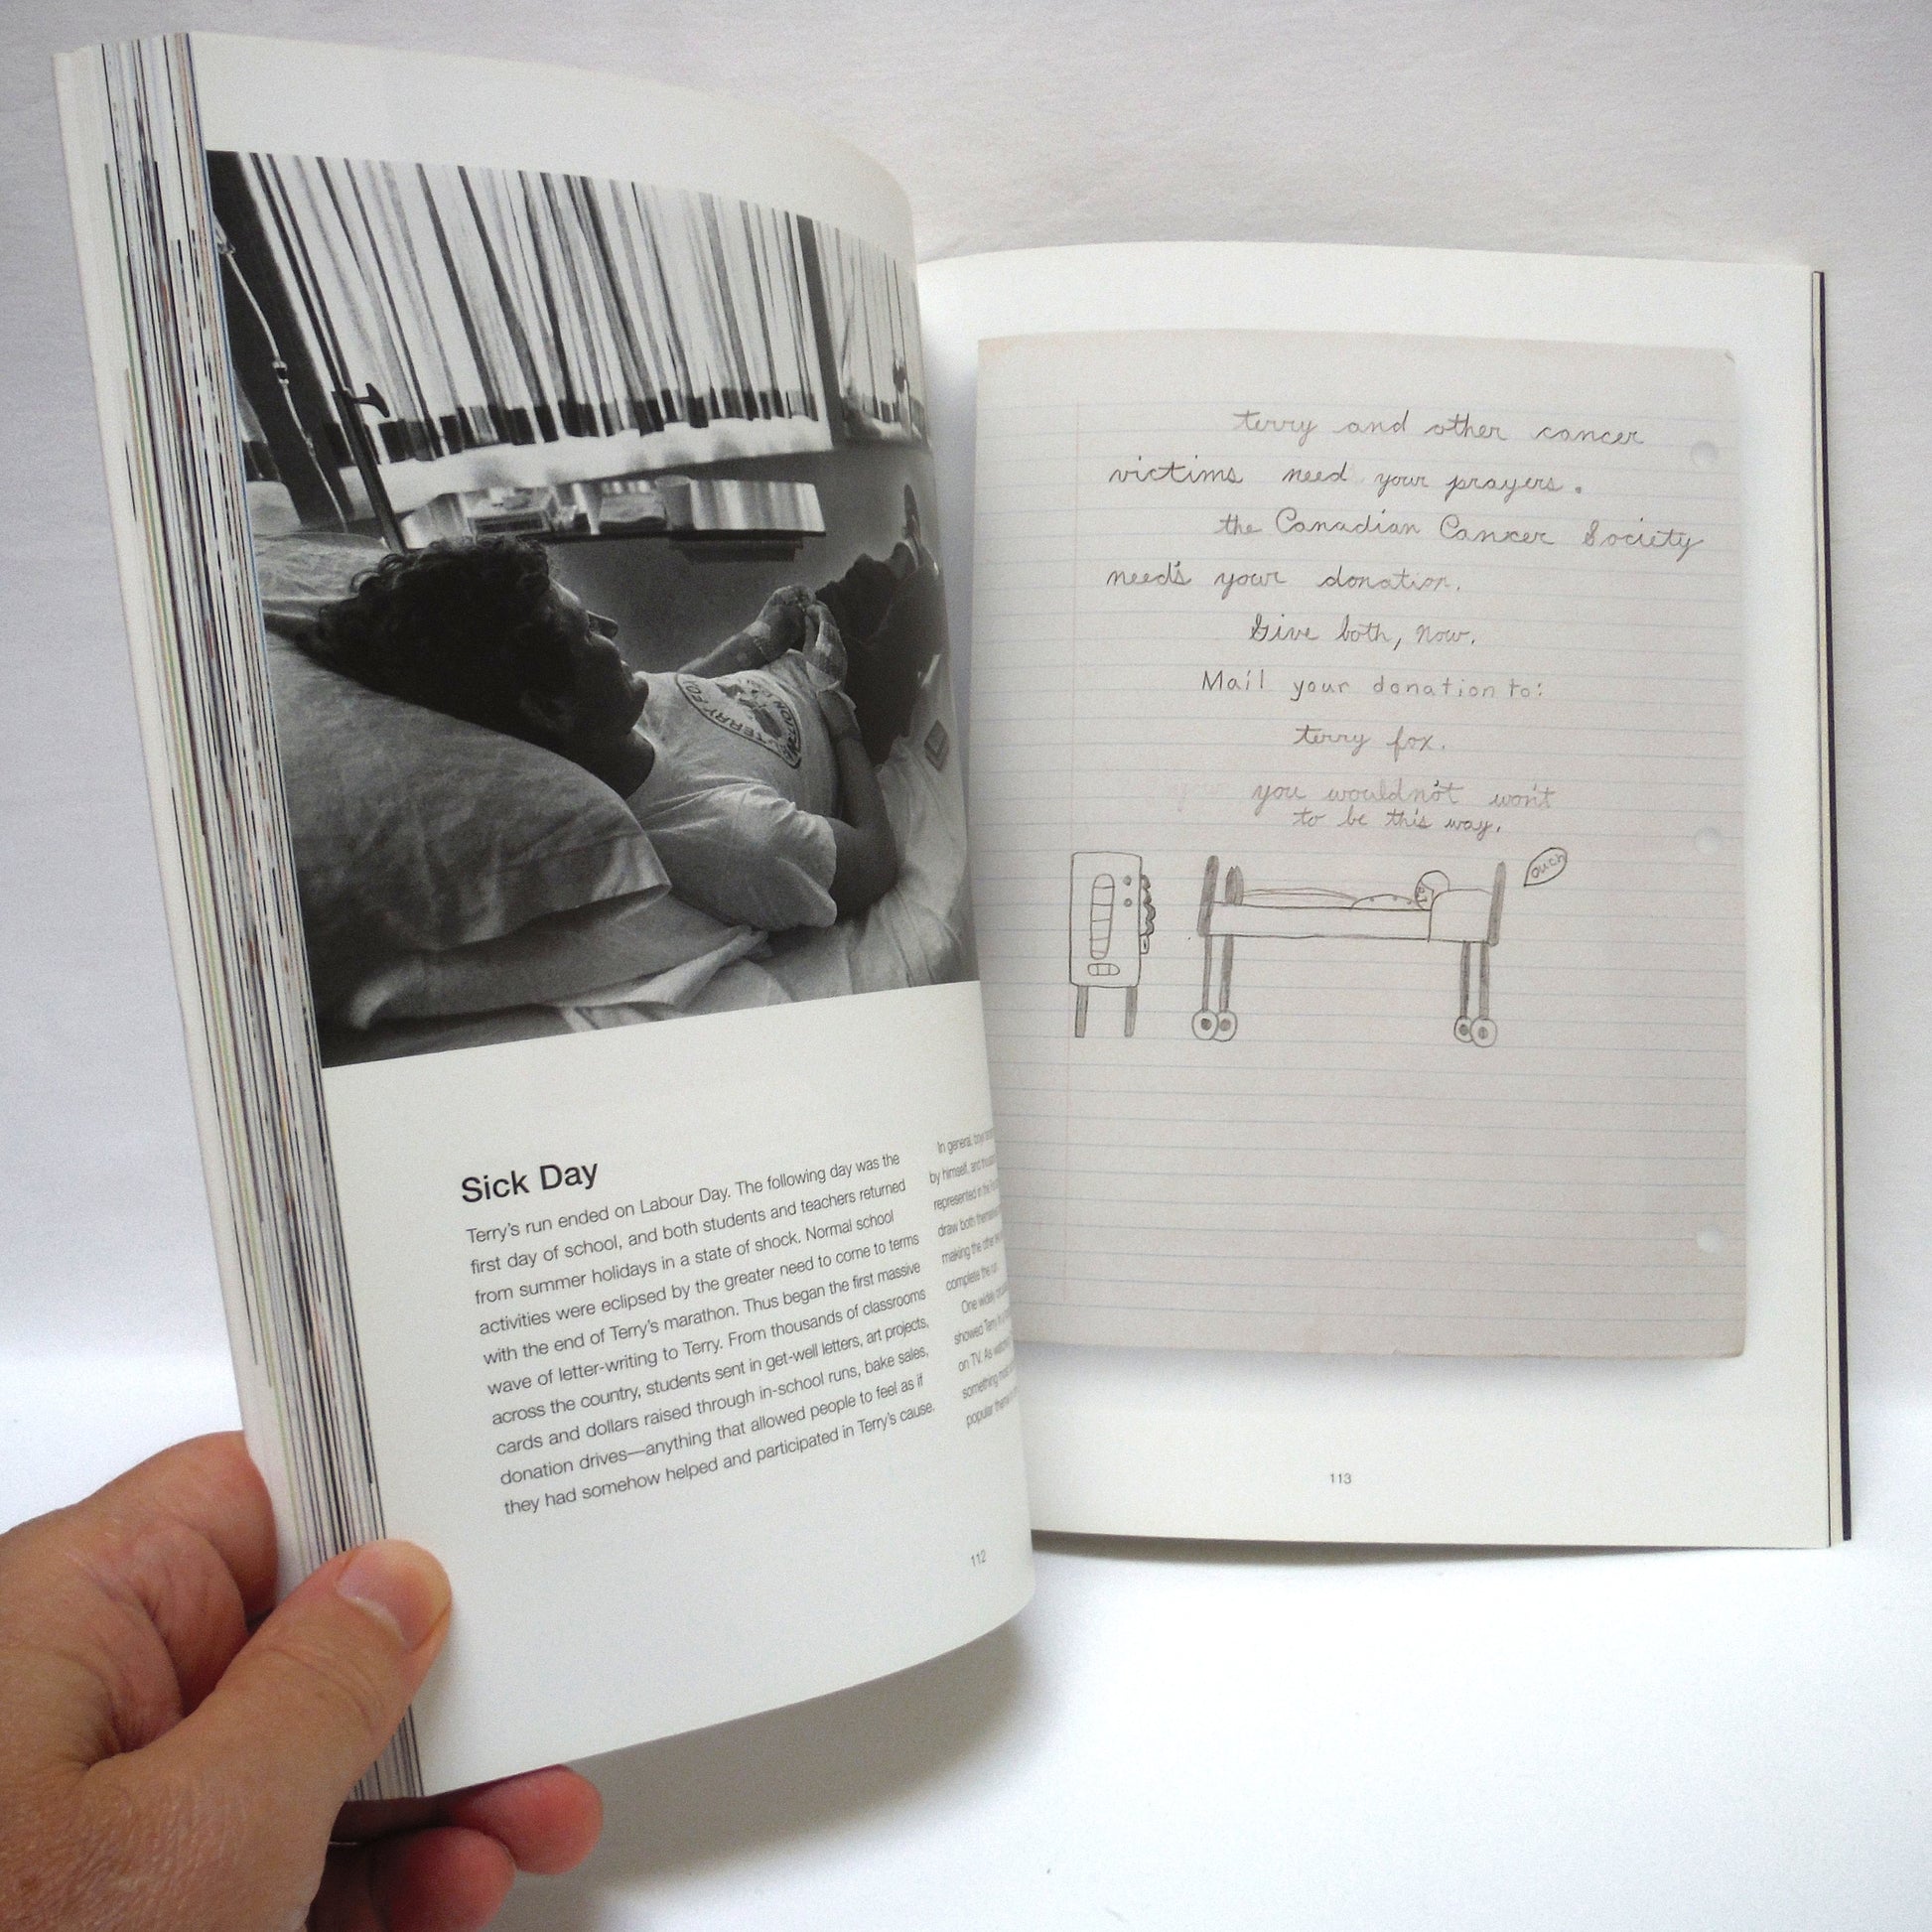 TERRY FOX
Sick Day
Terry's run ended on Labour Day. The following day was the
first day of school, and both students and teachers returned
from summer holidays in a state of shock. Normal school
activities were eclipsed by the greater need to come to terms
with the end of Terry's marathon. Thus began the first massive
wave of letter-writing to Terry. From thousands of classrooms
across the country, students sent in get-well letters, art projects,
cards and dollars raised through in-school runs, bake sales,
donation drives—anything that allowed people to feel as if
they had somehow helped and participated in Terry's cause.
In general, boys
by himself, and
represented in the
draw both
making the other
complete the run.
One widely
showed Terry in a
on TV. As
something
popular
112
terry and other cancer
victims need your prayers.
the Canadian Cancer Society
need's your donation.
Give both, now.
Mail your donation to:
terry fox.
you wouldn't won't
to be this way.
ouch
113